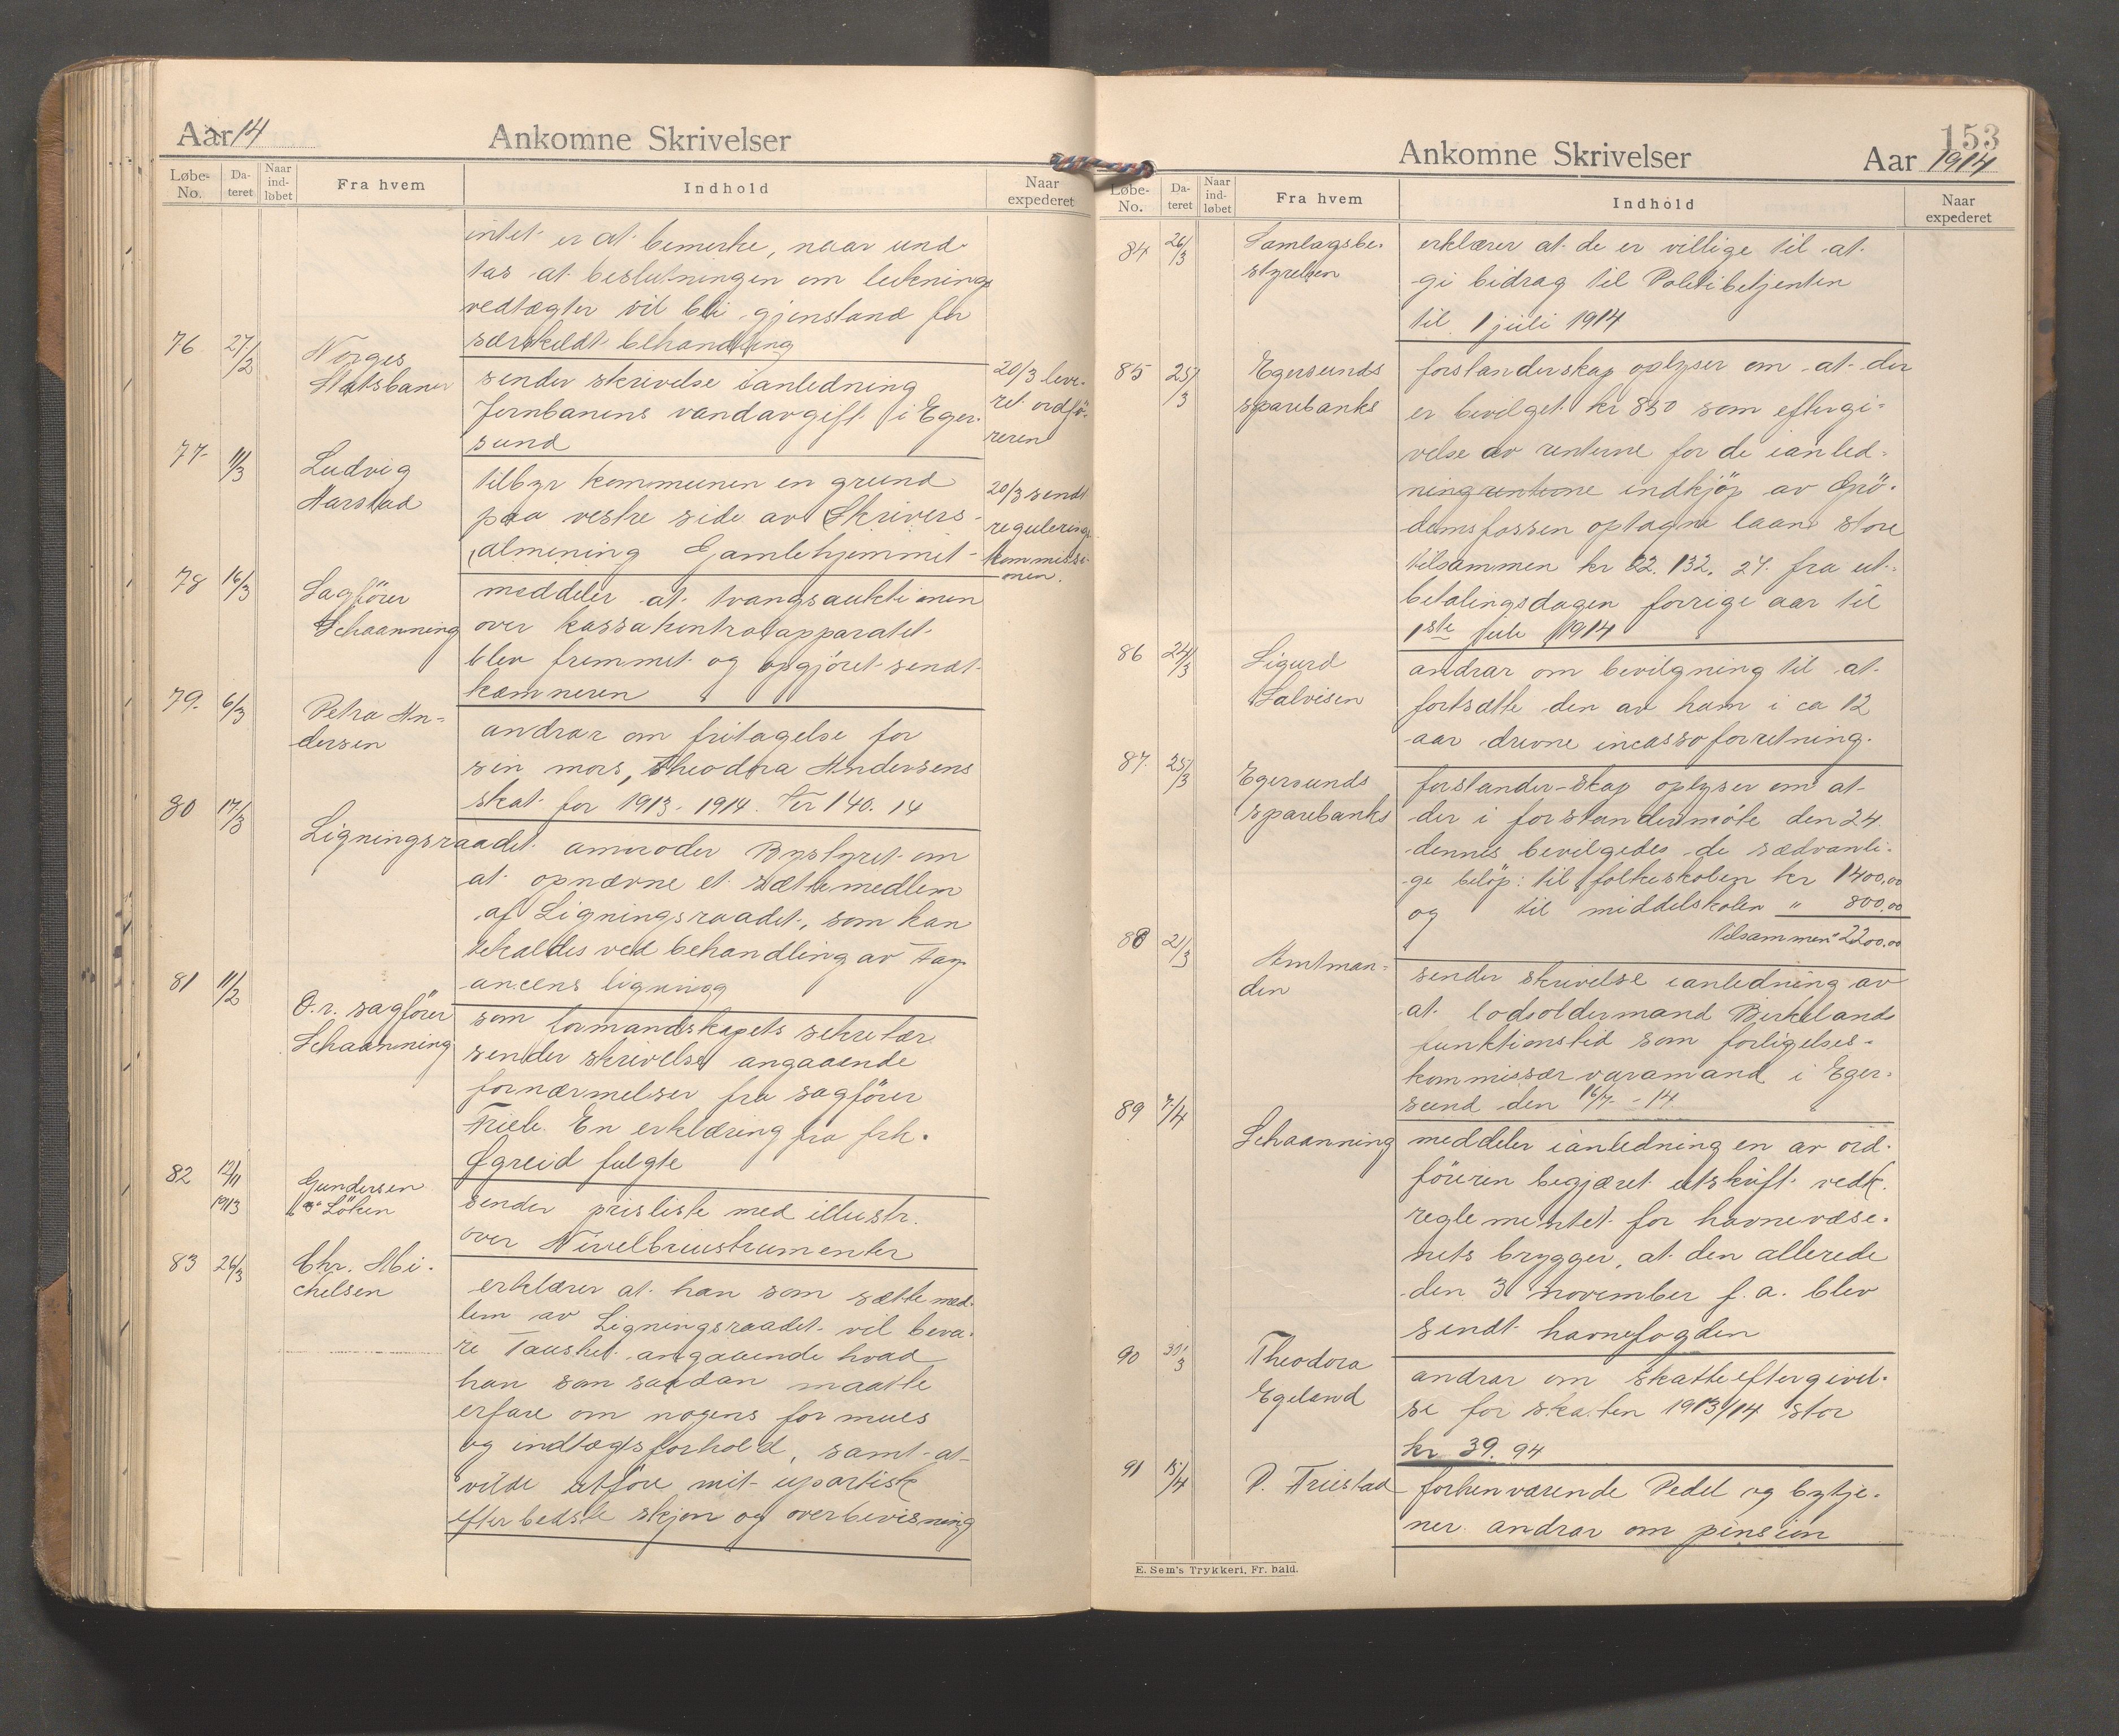 Aar 14
Ankomne Skrivelser
Løbe-No. Da-teret Naar ind-løbet Fra hvem Indhold Naar expederet
intet er at bemerke, naar und-
tas at beslutningen om
vedtægter vil bli gjenstand for
særskildt behandling
76 27/2 Norges Statsbaner
sender skrivelse ianledning
Jernbanens vandavgift i Eger-
sund
20/3 leve-
ret ordfö-
reren
77 11/3 Ludvig Harstad
tilbyr kommunen en grund
paa vestre side av Skrivers-
almening Gamlehjemmet
20/3 sendt
regulerings
kommissi-
onen.
78 16/3 Sagförer Schaanning
meddeler at tvangsauktionen
over kassakontrolapparatet
blev fremmet og opgjöret sendt
kæmneren
79. 6/3 Petra An-
dersen
andrar om fritagelse for
sin mors, Theodora Andersens
skat for 1913-1914. kr 140.14
80 17/3 Ligningsraadet anmoder Bystyret om
at opnævne et sætte medlem
af Ligningsraadet, som kan
tilkaldes ved behandling av
ancens ligning
81 11/2 O.r. sagförer
Schaanning
som formandskapets sekretær
sender skrivelse angaaende
fornærmelser fra sagförer
Friele. En erklæring fra frk.
Øgreid fulgte
82 12/11 1913 Gundersen
& Löken
sender prisliste med illustr.
over Nivelbruustrumenter
83 26/3 Chr. Mi-
chelsen
erklærer at han som sætte med-
lem av Ligningsraadet vil beva-
re Taushet angaaende hvad
han som saadan maatte
erfare om nogens formues
og indtægtsforhold, samt at
vilde utföre mit upartisk
efter bedste skjön og overbevisning
153
Ankomne Skrivelser
Aar 1914
Løbe-No. Da-teret Naar ind-løbet Fra hvem Indhold Naar expederet
84 26/3 Samlagsbe-
styrelsen
erklærer at de er villige til at
gi bidrag til Politibetjenten
til 1 juli 1914
85 25/3 Egersunds
sparebanks
forstanderskap oplyser om at der
er bevilget kr 850 som eftergi-
velse av renterne for de ianled-
ning renterne indkjöp av Grö-
demsfossen optagne laan store
tilsammen kr 82.132.24 fra ut-
betalingsdagen forrige aar til
1ste juli 1914
86 24/3 Sigurd
Salvisen
andrar om bevilgning til at
fortsætte den av ham i ca 12
aar drevne incassoforretning.
87. 25/3 Egersunds
sparebanks
forstander-skap oplyser om at
der i forstandermöte den 24
dennes bevilgedes de sædvanli-
ge belöp: til folkeskolen kr 1400,00
og til middelskolen " 800,00
tilsammen 2200,00
88 21/3 Amtman-
den
sender skrivelse ianledning av
at lodsoldermand Birkelands
funktionstid som forligelses-
kommissær varamand i Eger-
sund den 16/7 - 14
89 7/4 Schaanning
meddeler ianledning en av ord-
föreren begjæret utskrift vedk.
reglementet for havnevæse-
nets brygger, at den allerede
den 3 november f.a. blev
sendt havnefogden
90 30/3 Theodora
Egeland
andrar om skatteeftergivel-
se for skatten 1913/14 stor
kr 39.94
91 15/4 P. Friestad
forhenværende Pedel og bytje-
ner andrar om pension
E. Sem's Trykkeri, Fr. hald.